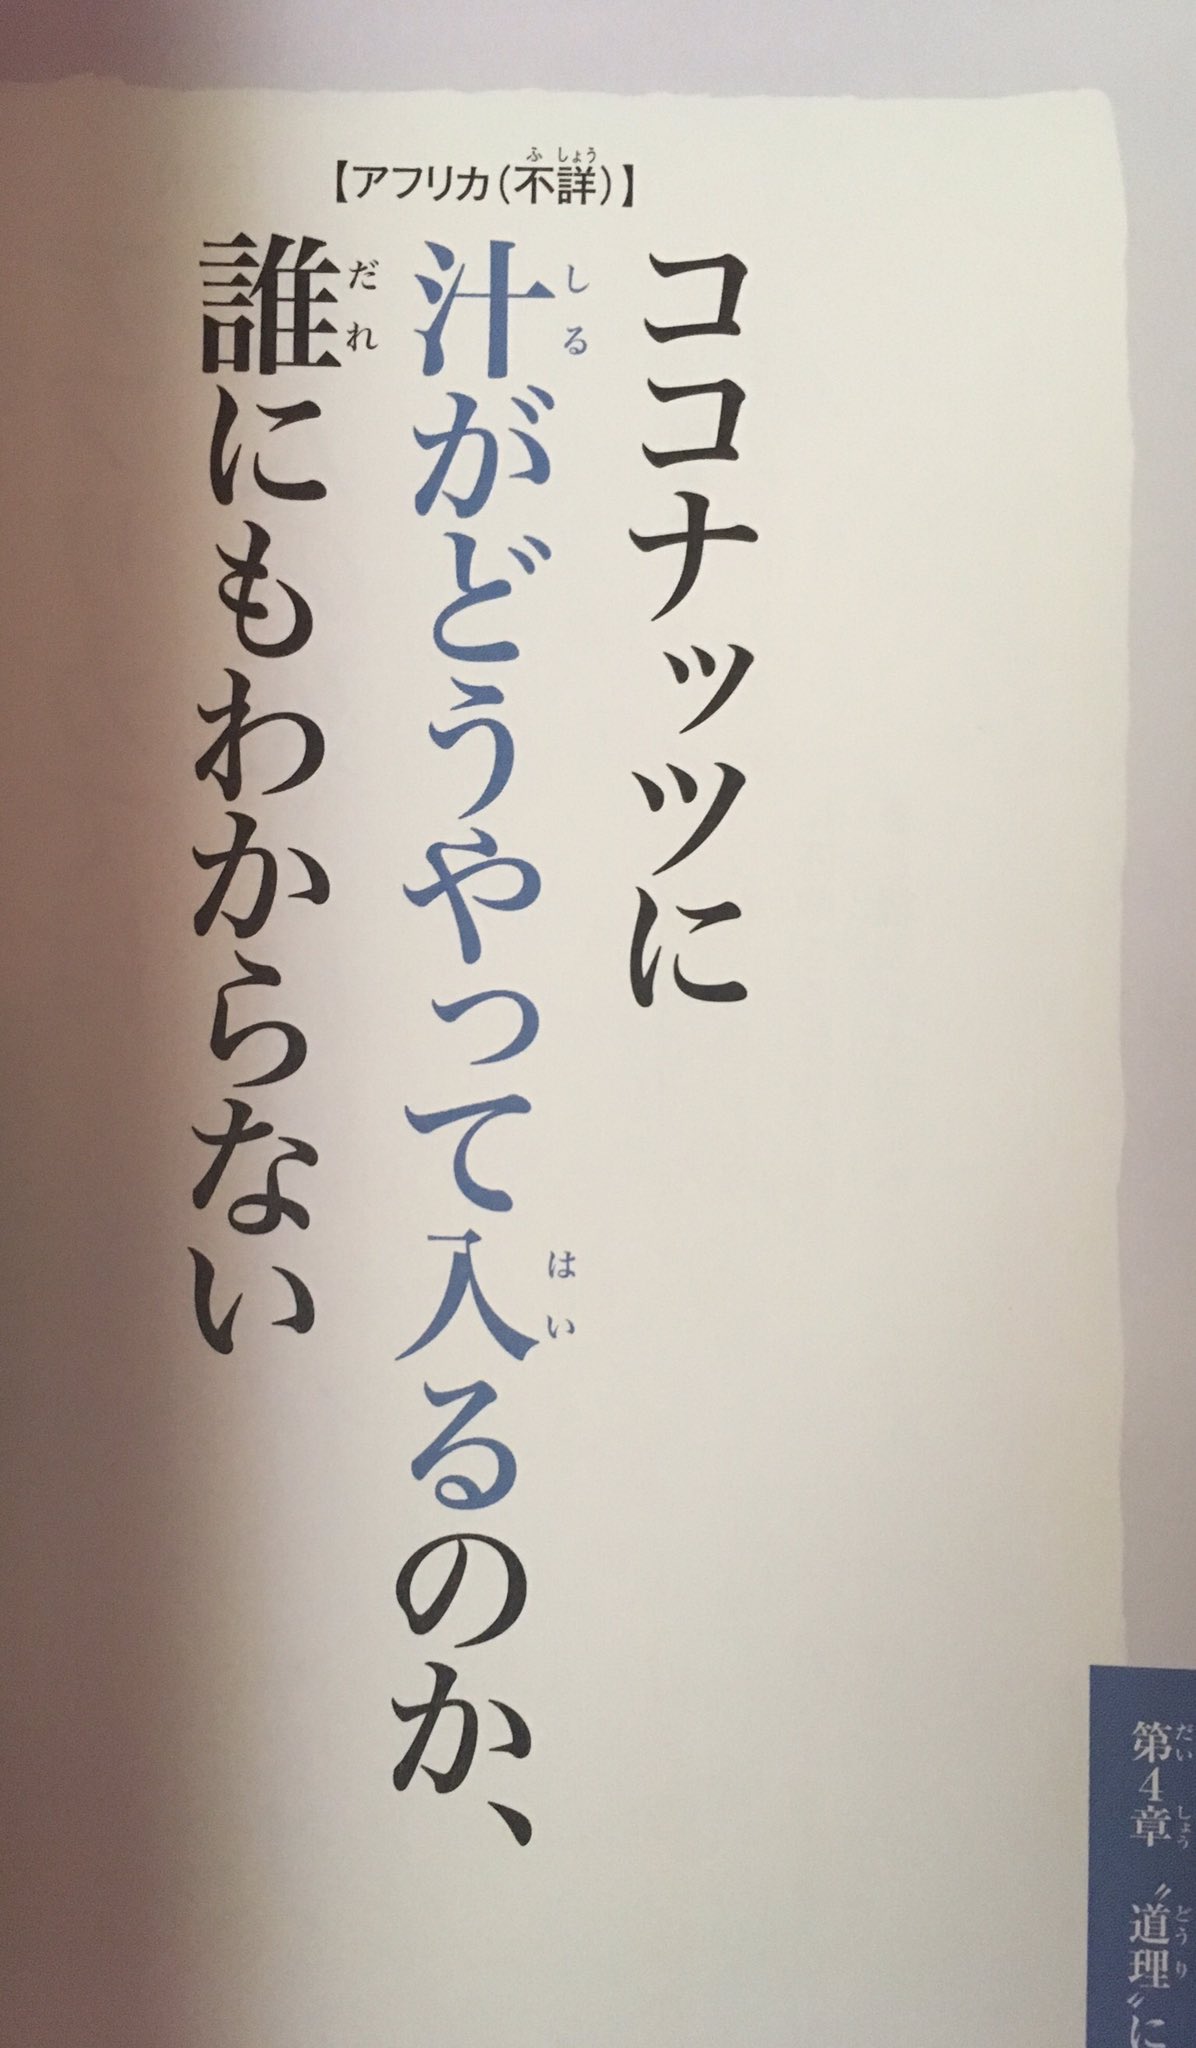 ココナッツに
汁がどうやって入るのか、
誰にもわからない
【アフリカ(不詳)】
第4章 〝道理〟に